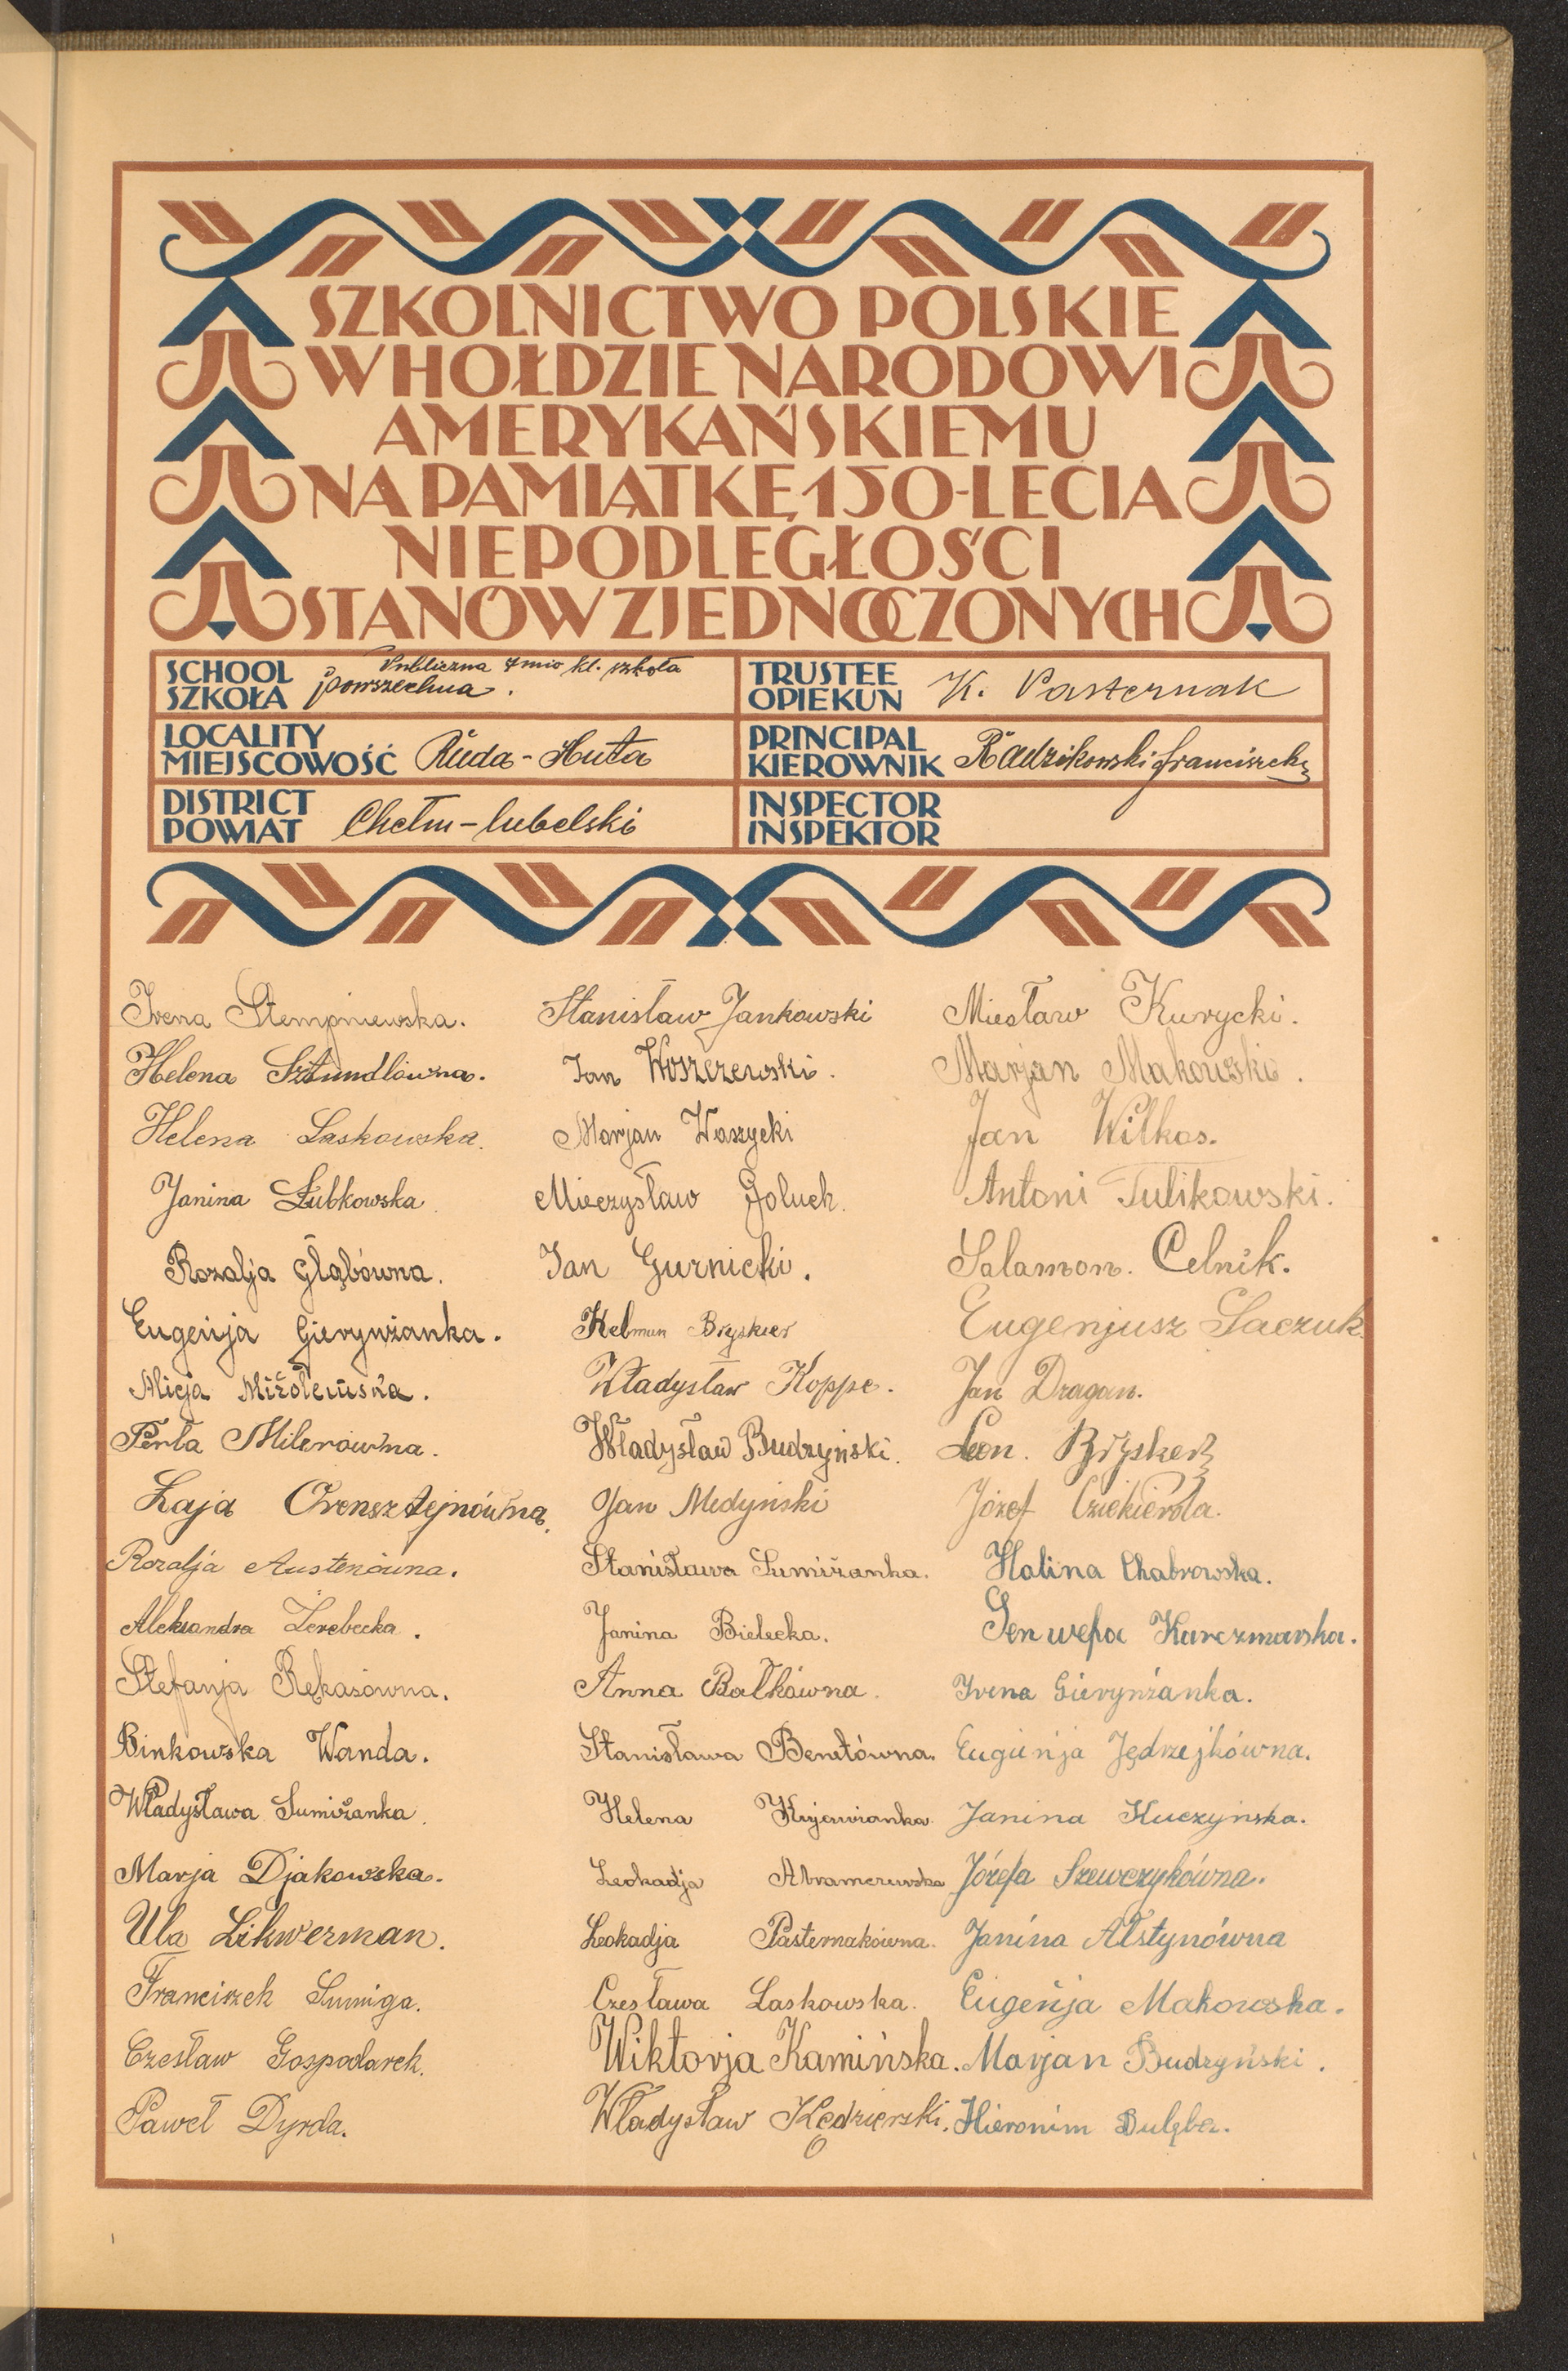 SZKOLNICTWO POLSKIE
W HOŁDZIE NARODOWI
AMERYKAŃSKIEMU
NA PAMIĄTKĘ 150-LECIA
NIEPODLEGŁOŚCI
STANÓW ZJEDNOCZONYCH
SCHOOL
SZKOŁA
Publiczna 7mio kl. szkoła
powszechna.
TRUSTEE
OPIEKUN
K. Pasternak
LOCALITY
MIEJSCOWOŚĆ
Ruda-Huta
PRINCIPAL
KIEROWNIK
Radzikowski Franciszek
DISTRICT
POWIAT
Chełm-lubelski
INSPECTOR
INSPEKTOR
Irena Stempniewska.
Helena Sztundlówna.
Helena Laskowska.
Janina Łubkowska.
Rozalja Głąbówna.
Eugenja Gierynżanka.
Alicja
Perla Milerówna.
Łaja Orensztejnówna.
Rozalja Austerówna.
Aleksandra Zerebecka.
Stefanja Rękasówna.
Binkowska Wanda.
Władysława Sumiżanka.
Marja Djakowska.
Ula Likwerman.
Franciszek Sumiga.
Czesław Gospodarek.
Paweł Dyrda.
Stanisław Jankowski
Jan Woszczewski.
Marjan Waszycki
Mieczysław Goluch.
Jan Gurnicki.
Kelman Bryskier
Władysław Koppe.
Władysław Budzyński.
Jan Medyński
Stanisława Sumiżanka.
Janina Bielecka.
Anna Bałkówna.
Stanisława Benetówna.
Helena Kujawianka.
Leokadja
Leokadja Pasternakówna.
Czesława Laskowska.
Wiktorja Kamińska.
Władysław Kędzierski.
Miesław Kurycki.
Marjan Makowski.
Jan Wilkos.
Antoni Tulikowski.
Salamon. Celnik.
Eugenjusz Saczuk
Jan Dragan.
Leon. Bryskier
Józef
Halina Chabrowska.
Genwefa Karczmarska.
Irena Gierynżanka.
Eugienja Jędrzejkówna.
Janina Kuczyńska.
Józefa Szewczykówna.
Janina Alstynówna
Eugenja Makowska.
Marjan Budzyński.
Hieronim Dulęba.